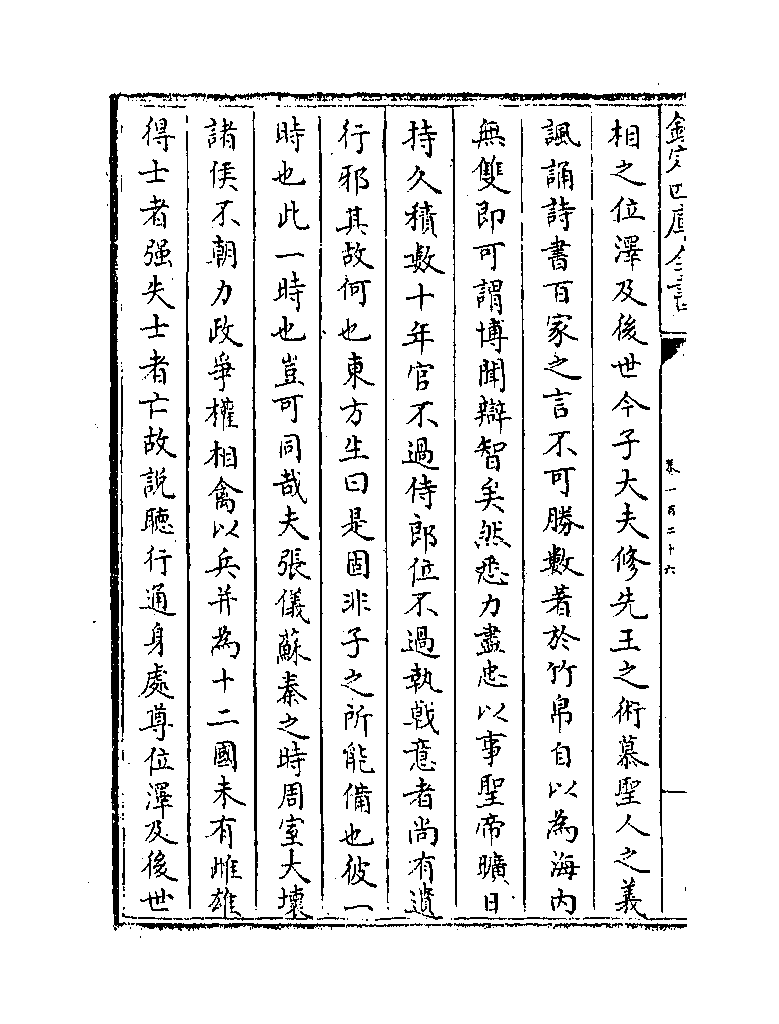 欽定四庫全書
卷一百二十六
相之位澤及後世今子大夫修先王之術慕聖人之義
諷誦詩書百家之言不可勝數著於竹帛自以為海内
無雙即可謂博聞辯智矣然悉力盡忠以事聖帝曠日
持久積數十年官不過侍郎位不過執戟意者尚有遺
行邪其故何也東方生曰是固非子之所能備也彼一
時也此一時也豈可同哉夫張儀蘇秦之時周室大壞
諸侯不朝力政爭權相禽以兵并為十二國未有雌雄
得士者强失士者亡故説聽行通身處尊位澤及後世